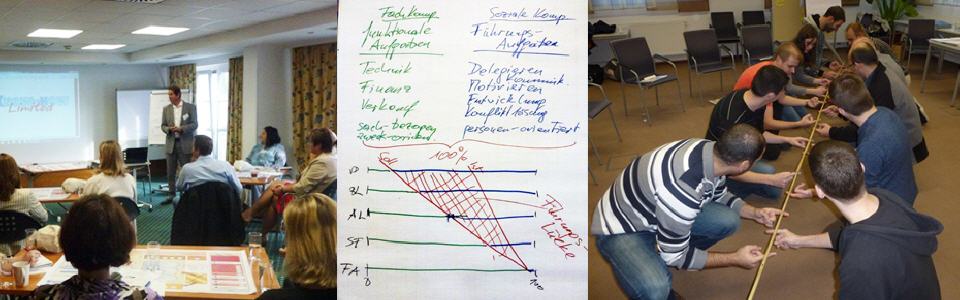 Limited
Fachkomp
funktionale
Aufgaben
Technik
Finanz
Verkauf
sach-bezogen
zweck-orientiert
Soziale Komp
Führungs-
Aufgaben
Delegieren
Kommunik.
Motivieren
Entwicklung
Konfliktlösung
personen-orientiert
Soll
100%
Ist
D
BL
AL
ST
FA
0
100
Führungs-
Lücke